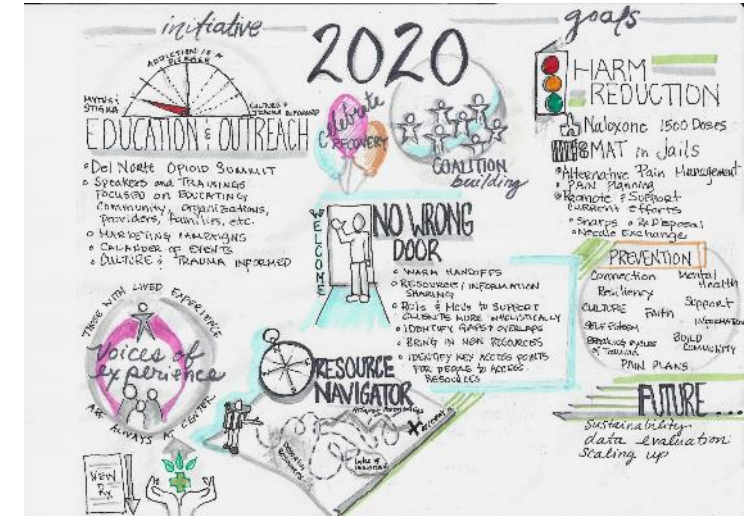 initiative
2020
goals
ADDICTION IS A
DISEASE
MYTHS &
STIGMA
CULTURE &
TRAUMA INFORMED
EDUCATION & OUTREACH
Del Norte Opioid Summit
Speakers and Trainings
focused on educating
community, organizations,
providers, families, etc.
Marketing Campaigns
Calander of Events
Culture & Trauma Informed
Celebrate
RECOVERY
COALITION
building
HARM
REDUCTION
Naloxone 1500 Doses
MAT in Jails
Alternative Pain Management
Pain Planning
Promote & Support
current efforts
Sharps & Rx Disposal
Needle Exchange
WELCOME
NO WRONG
DOOR
Warm Handoffs
Resource & Information
Sharing
ROIs & MOUs to support
clients more wholistically
Identify gaps & overlaps
Bring in new resources
Identify key access points
for people to access
resources
PREVENTION
Connection
Mental
Health
Resiliency
Support
Culture
Faith
Information
Self Esteem
Build
Community
Breaking cycles
of Trauma
Pain Plans
THOSE WITH LIVED EXPERIENCE
Voices of
experience
ARE ALWAYS AT CENTER
RESOURCE
NAVIGATOR
Recovery
NEW
Rx
FUTURE...
Sustainability
data evaluation
scaling up